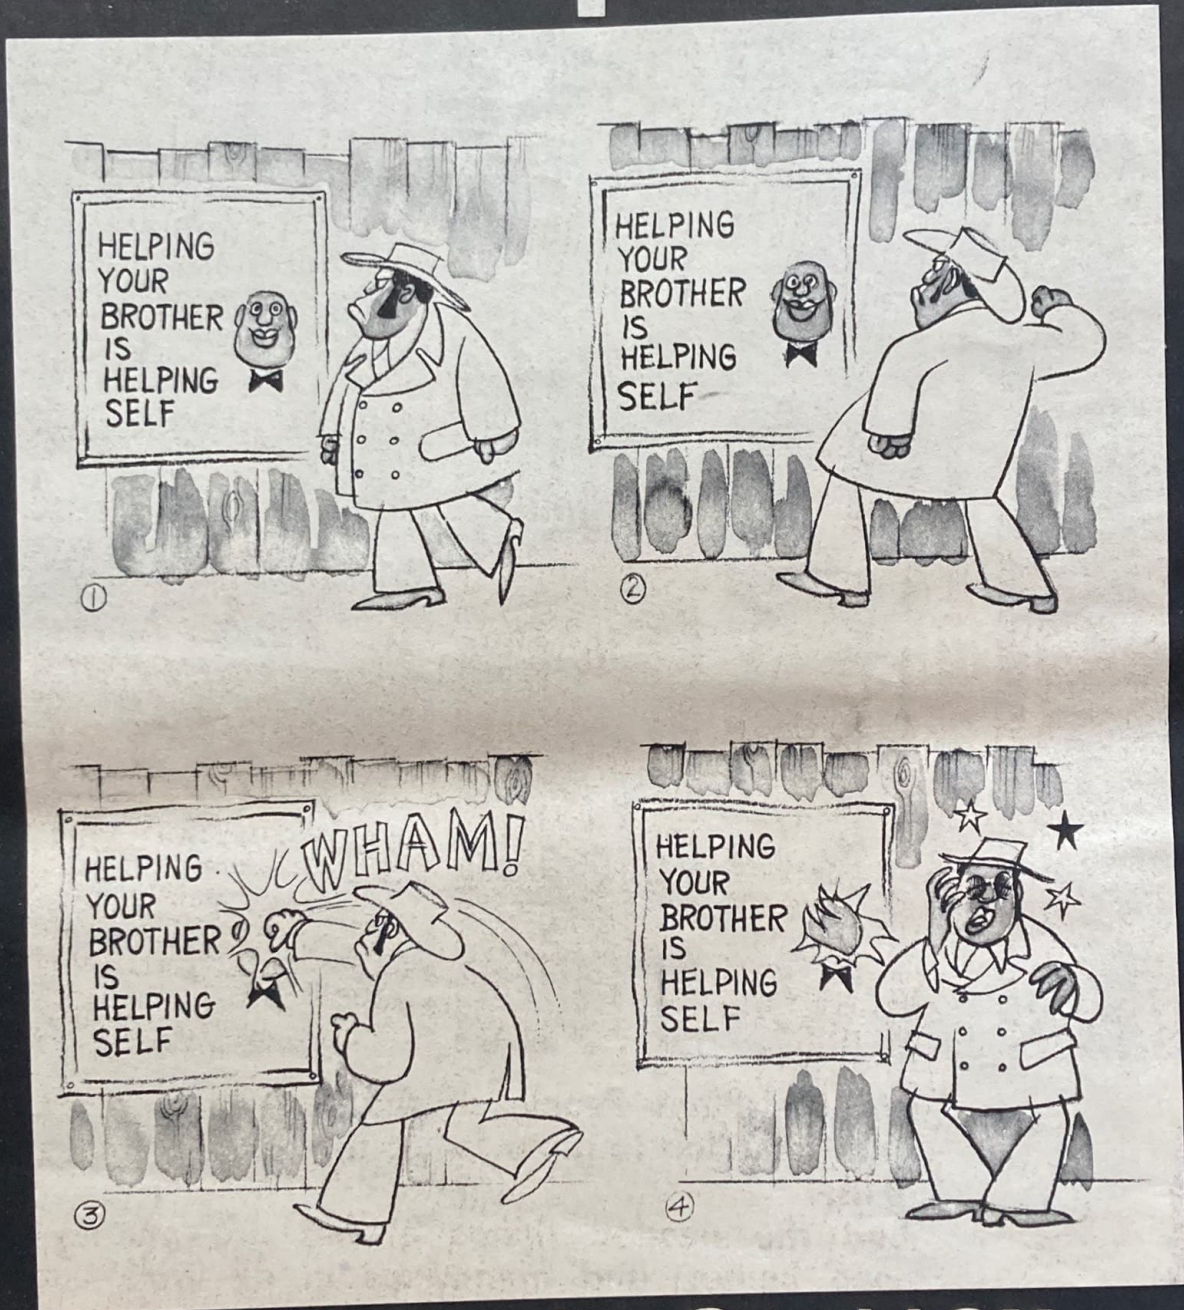 HELPING
YOUR
BROTHER
IS
HELPING
SELF
1
HELPING
YOUR
BROTHER
IS
HELPING
SELF
2
WHAM!
HELPING
YOUR
BROTHER
IS
HELPING
SELF
3
HELPING
YOUR
BROTHER
IS
HELPING
SELF
4